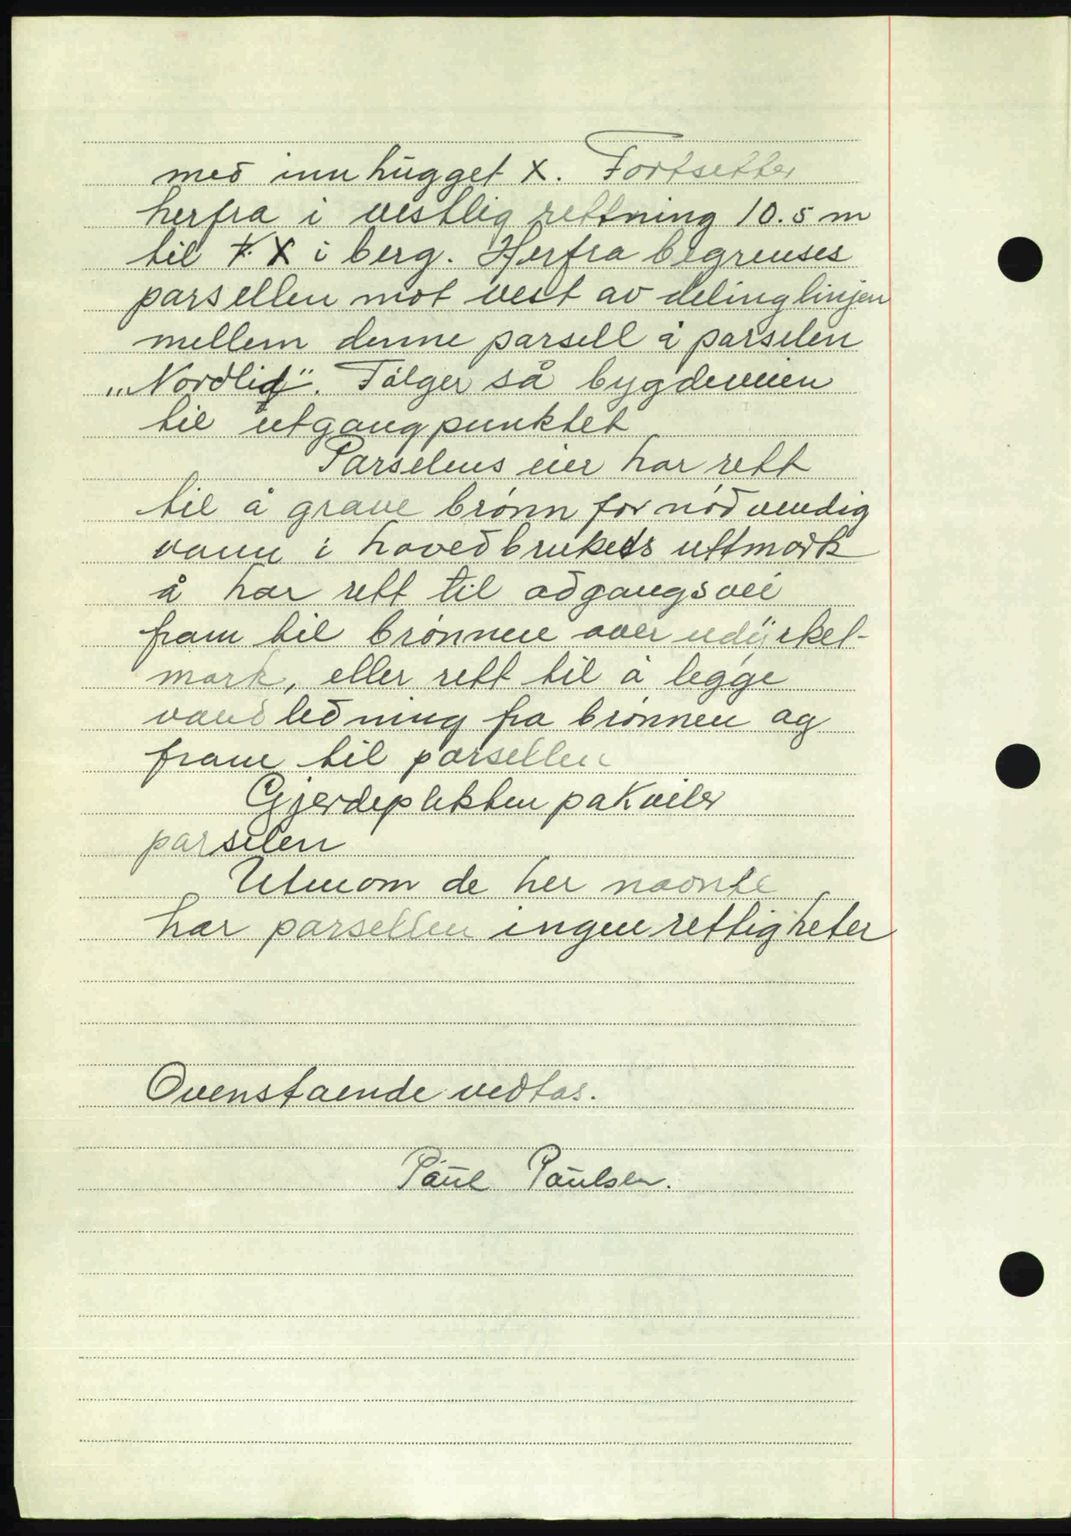 med innhugget X. Fortsetter
herfra i vestlig rettning 10.5 m
til X i berg. Herfra begrenses
parsellen mot vest av delinglinjen
mellem denne parsell å parselen
„Nordli". Følger så bygdeveien
til utgangpunktet
Parselens eier har rett
til å grave brønn for nødvendig
vann i hovedbrukets uttmark
å har rett til adgangsvei
fram til brønnen over udyrket-
mark, eller rett til å legge
vandledning fra brønnen og
fram til parsellen
Gjerdeplikten påkviler
parselen
Utenom de her nevnte
har parsellen ingen rettigheter
Ovenstaende vedtas.
Paul Paulsen.